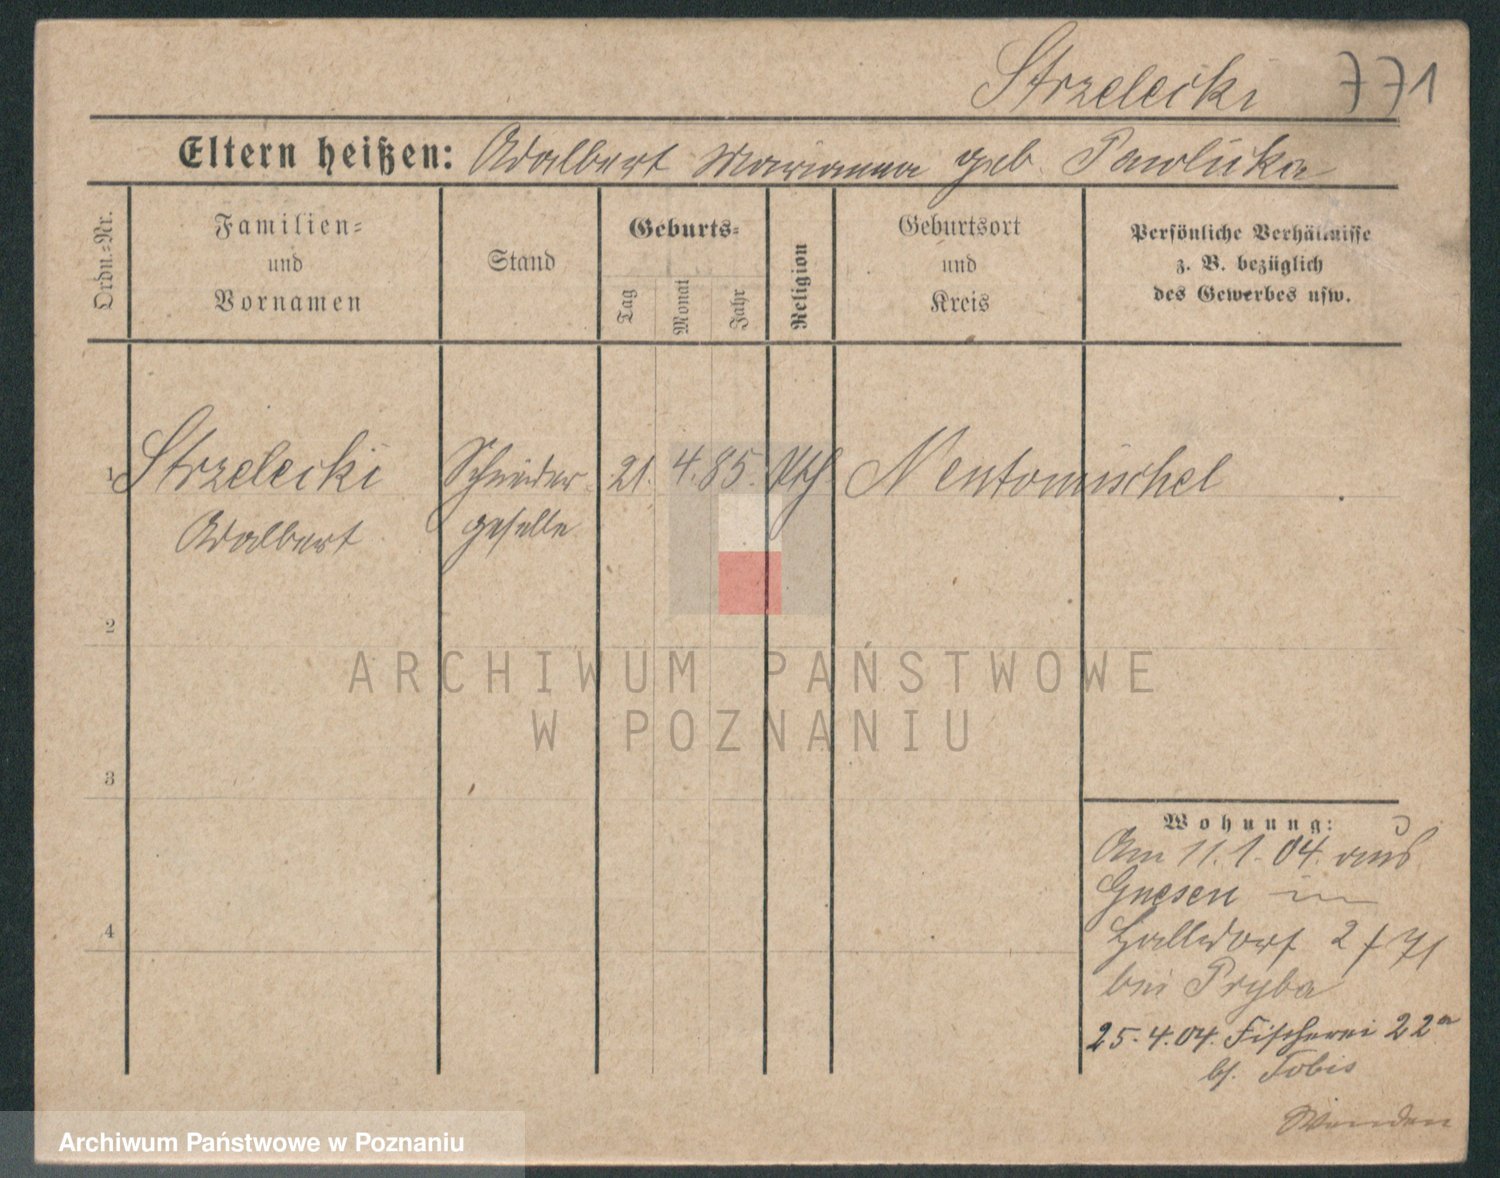 Strzelecki 771
Eltern heißen: Adalbert Marianna geb. Pawlicka
Ordn.-Nr.
Familien-
und
Vornamen
Stand
Geburts-
Tag
Monat
Jahr
Religion
Geburtsort
und
Kreis
Persönliche Verhältnisse
z. B. bezüglich
des Gewerbes usw.
1 Strzelecki Schneider 21. 4. 85. kth. Neutomischel
Adalbert geselle
2
3
4
Wohnung:
Am 11.1.04. aus
Gnesen in
Halldorf 2/71
bei Pryba
25.4.04. Fischerei 22a
b. Tobis
Wenden
ARCHIWUM PAŃSTWOWE
W POZNANIU
Archiwum Państwowe w Poznaniu